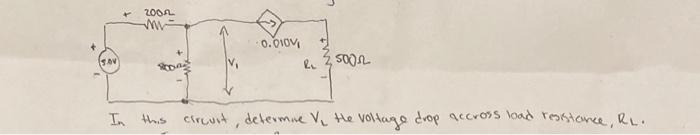 + 200Ω -
+ 5.0V -
+ 800Ω -
V₁
0.010V₁
RL
+ 500Ω -
In this circuit, determine VL the voltage drop accross load resistance, RL.